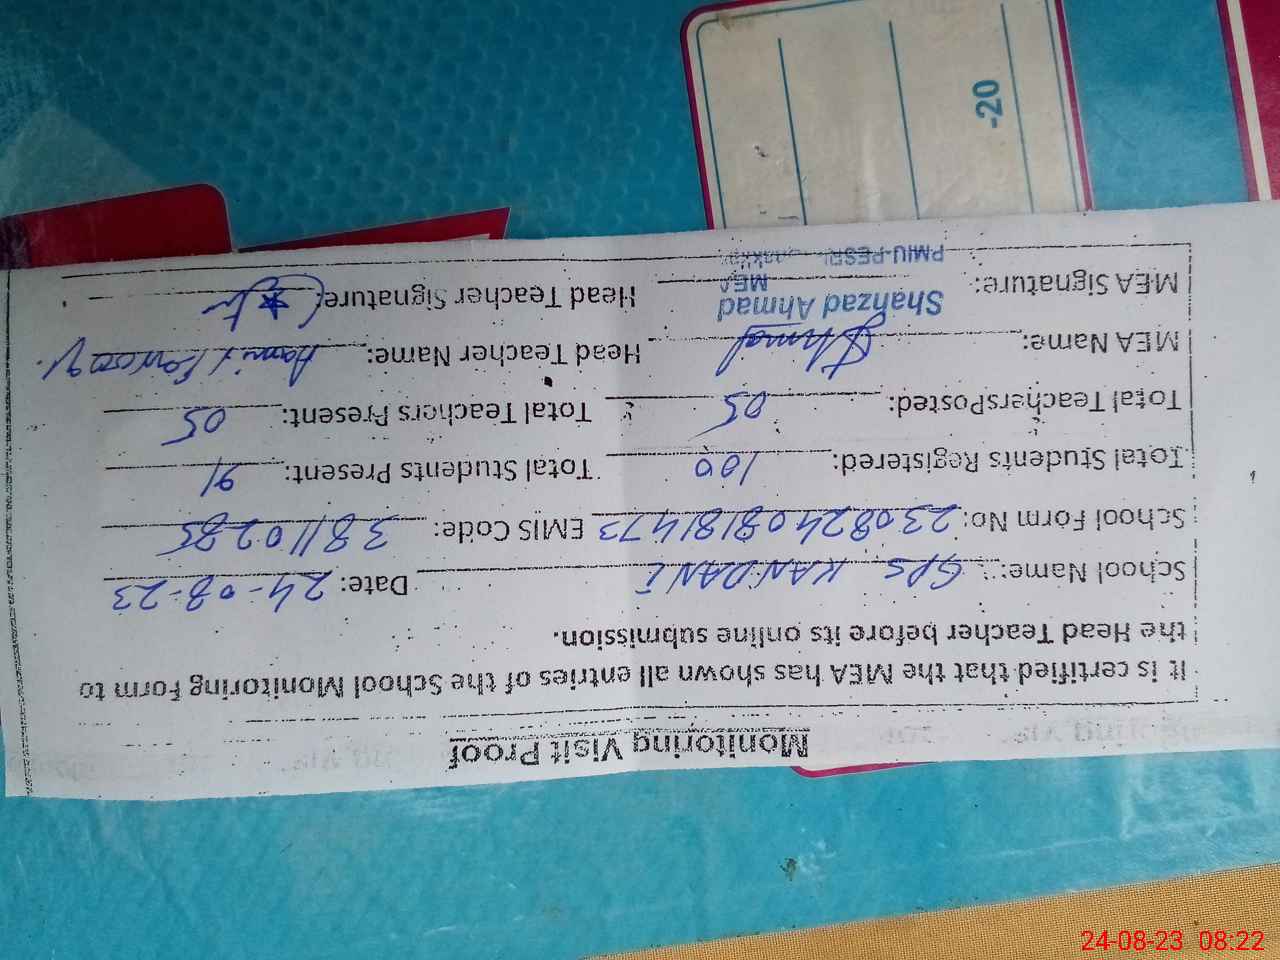 Monitoring Visit Proof
It is certified that the MEA has shown all entries of the School Monitoring Form to
the Head Teacher before its online submission.
School Name: GPS KANDANE Date: 24-08-23
School Form No: 23082408181473 EMIS Code: 38110285
Total Students Registered: 100 Total Students Present: 91
Total TeachersPosted: 05 Total Teachers Present: 05
MEA Name: Head Teacher Name:
Shahzad Ahmad
MEA Signature: MEA Head Teacher Signature:
-20
24-08-23 08:22